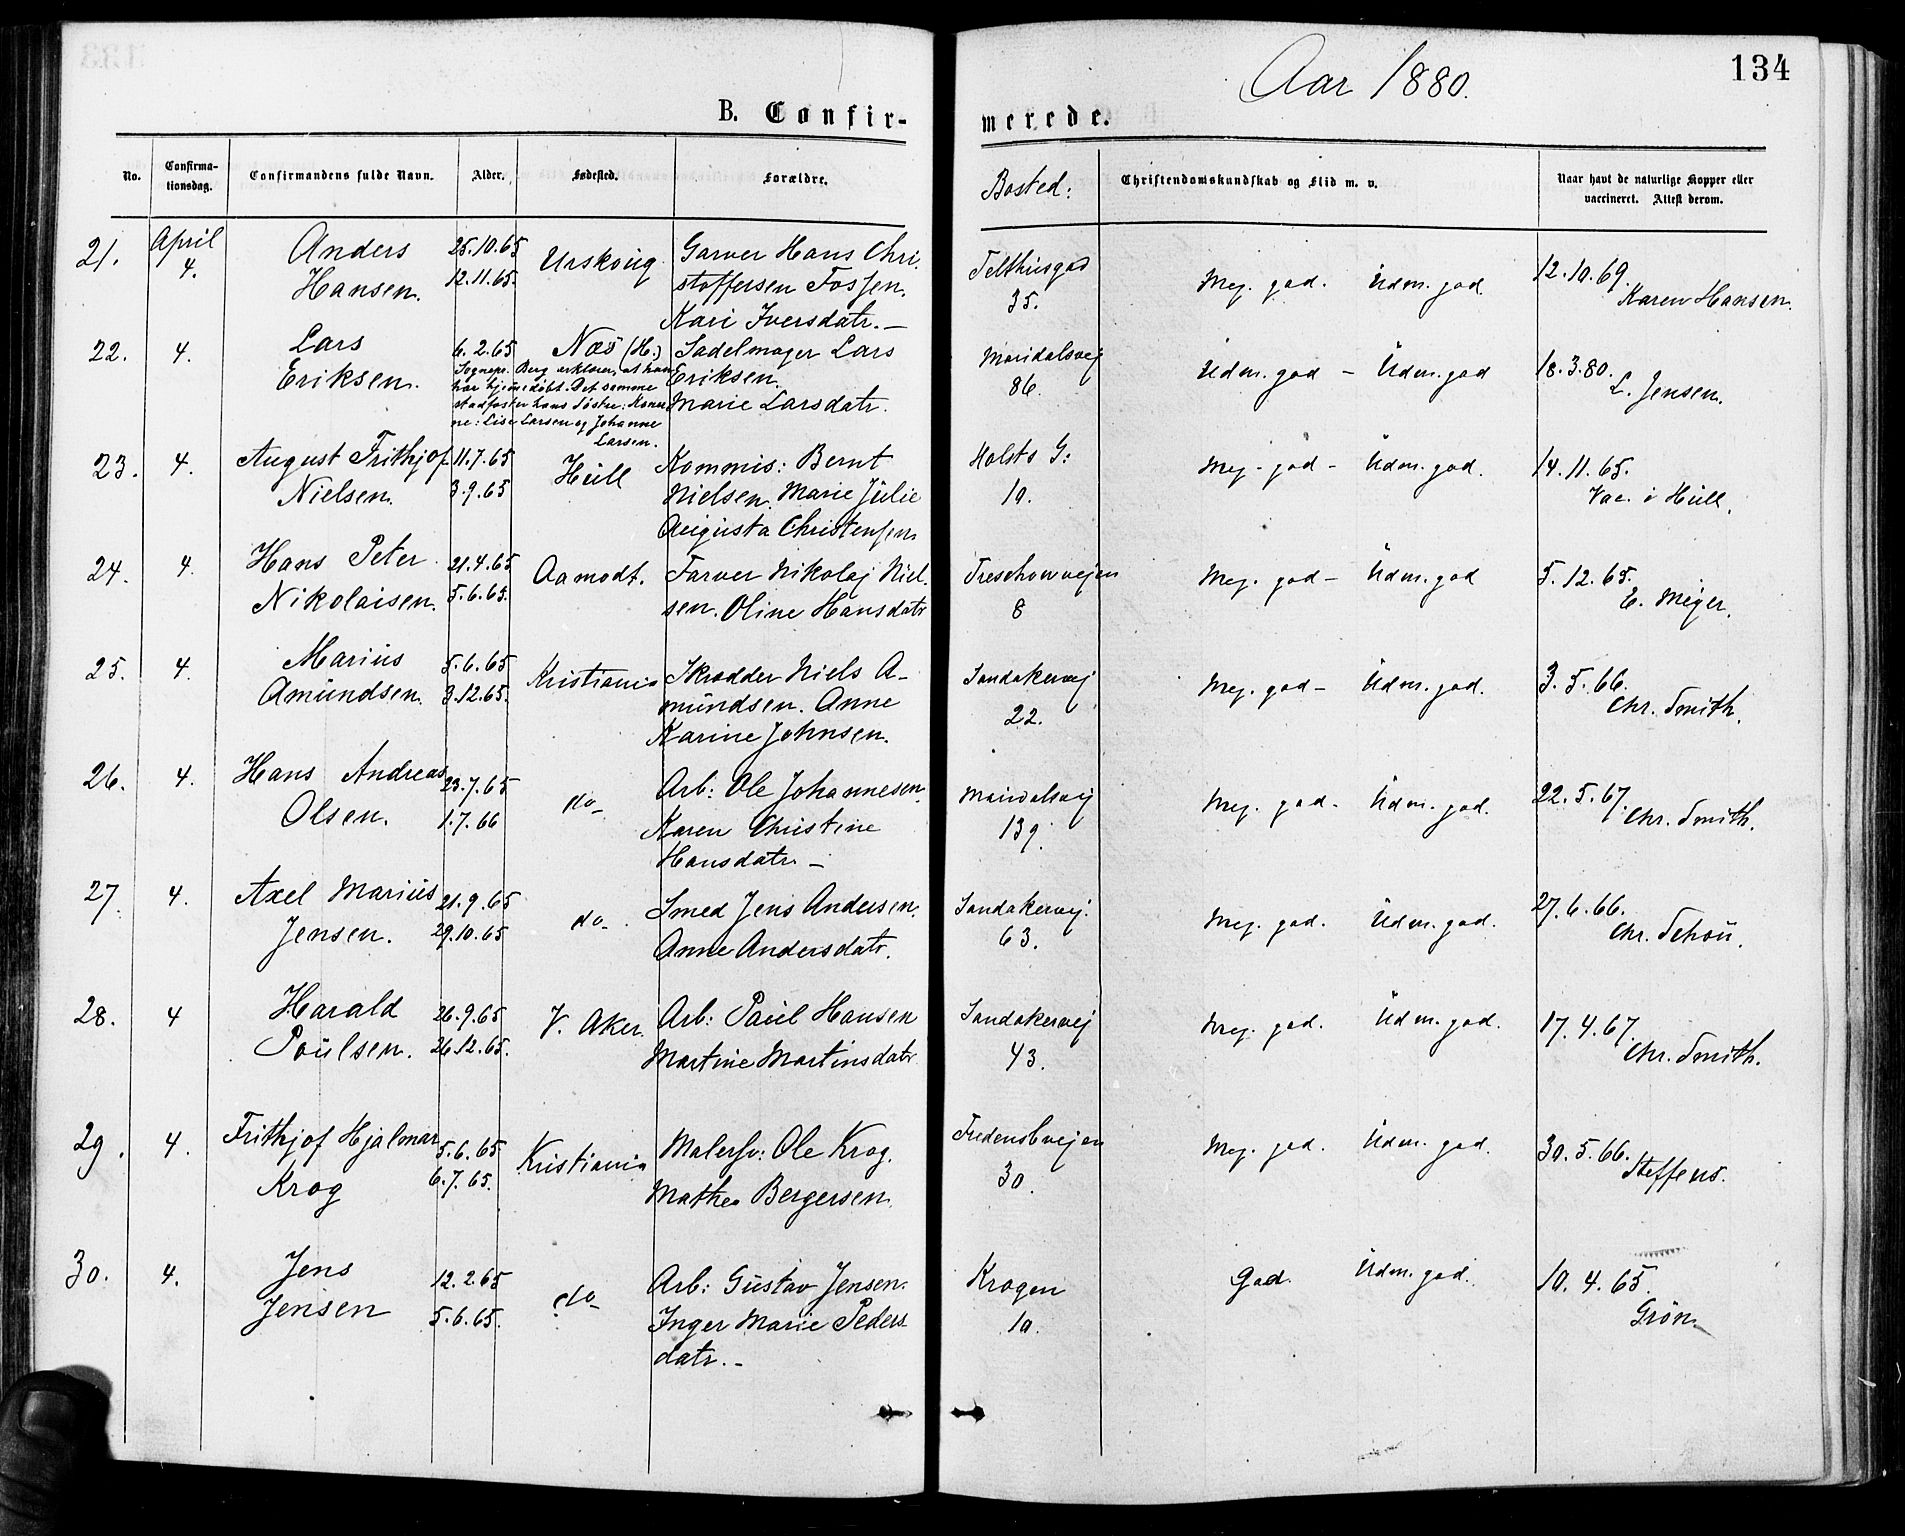 Aar 1880.
134
B. Confir-
merede.
No.
Confirma-
tionsdag.
Confirmandens fulde Navn.
Alder.
Fødested.
Forældre.
Bosted:
Christendomskundskab og Flid m. v.
Naar havt de naturlige Kopper eller
vaccineret. Attest derom.
21. April 4. Anders 25.10.65 Urskoug Garver Hans Chri- Telthusgad 12.10.69.
Hansen. 12.11.65. stoffersen Fossen. 35. Meg. god. Udm. god. Karen Hansen.
Kari Iversdatr. -
22. 4. Lars 6.2.65 Næs (H.) Sadelmager Lars Maridalsvej 18.3.80.
Sognepr. Berg erklærer, at han
Eriksen. har hjemedöbt. Det samme Eriksen. 86. Udm. god - Udm. god L. Jensen.
stadfæster hans Söstre: Koner- Marie Larsdatr.
ne: Lise Larsen og Johanne
Larsen.
23. 4. August Frithjof 11.7.65 Hull Kommis: Bernt Holsts G: Meg. god - Udm. god. 14.11.65.
Nielsen. 3.9.65 Nielsen. Marie Julie 10. Vac. i Hull.
Augusta Christensen
24. 4. Hans Peter 21.4.65 Aamodt. Farver Nikolaj Niel- Treschowvejen Meg. god - Udm. god 5.12.65.
Nikolaisen. 5.6.65. sen. Oline Hansdatr 8 E. Meyer.
25. 4. Marius 5.6.65 Kristiania Skrædder Niels A- Sandakervej Meg. god - Udm. god. 3.5.66.
Amundsen. 3.12.65. mundsen. Anne 22. Chr. Smith.
Karine Johnsen.
26. 4. Hans Andreas 23.7.65 do Arb: Ole Johannesen. Maridalsvej Meg. god - Udm. god. 22.5.67.
Olsen. 1.7.66 Karen Christine 139. Chr. Smith.
Hansdatr. -
27. 4. Axel Marius 21.9.65 do Smed Jens Andersen. Sandakervej. Meg. god. Udm. god. 27.6.66.
Jensen. 29.10.65 Anne Andersdatr. 63. Chr. Schou.
28. 4 Harald 26.9.65 V. Aker. Arb: Paul Hansen Sandakervej Meg. god. Udm. god. 17.4.67.
Poulsen. 26.12.65. Martine Martinsdatr 43. Chr. Smith.
29. 4. Frithjof Hjalmar 5.6.65 Kristiania Malersv: Ole Krog. Fredensbvejen Meg. god. Udm. god. 30.5.66.
Krog 6.7.65. Mathea Bergersen. 30. Steffens.
30. 4. Jens 12.2.65 do Arb: Gustav Jensen. Krogen God. Udm. god. 10.4.65.
Jensen 5.6.65. Inger Marie Peders- 10. Grön.
datr. -